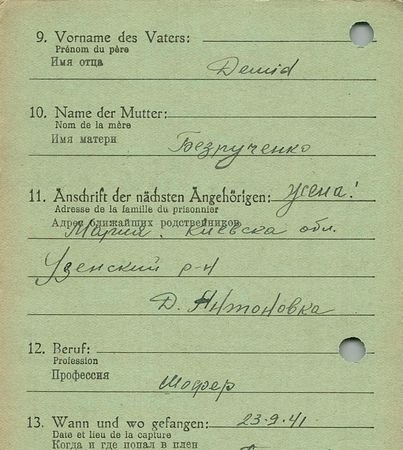 9. Vorname des Vaters:
Prénom du père
Имя отца
Demid
10. Name der Mutter:
Nom de la mère
Имя матери
Безрученко
11. Anschrift der nächsten Angehörigen: жена!
Adresse de la famille du prisonnier
Адрес ближайших родственников
Мария. Киевска обл.
Узенский р-н
Д. Антоновка
12. Beruf:
Profession
Профессия
шофер
13. Wann und wo gefangen: 23-9-41
Date et lieu de la capture
Когда и где попал в плен